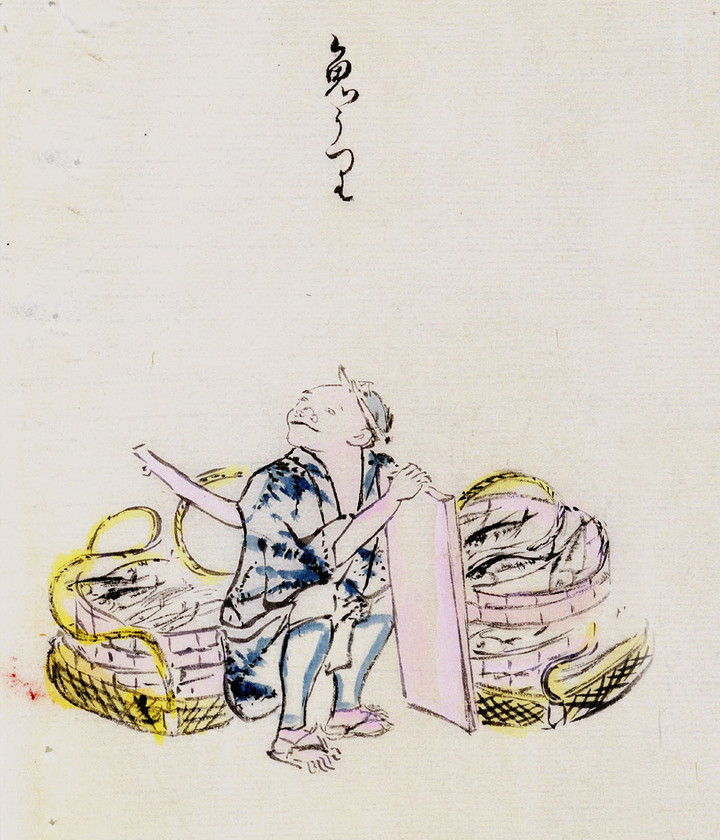 魚うり